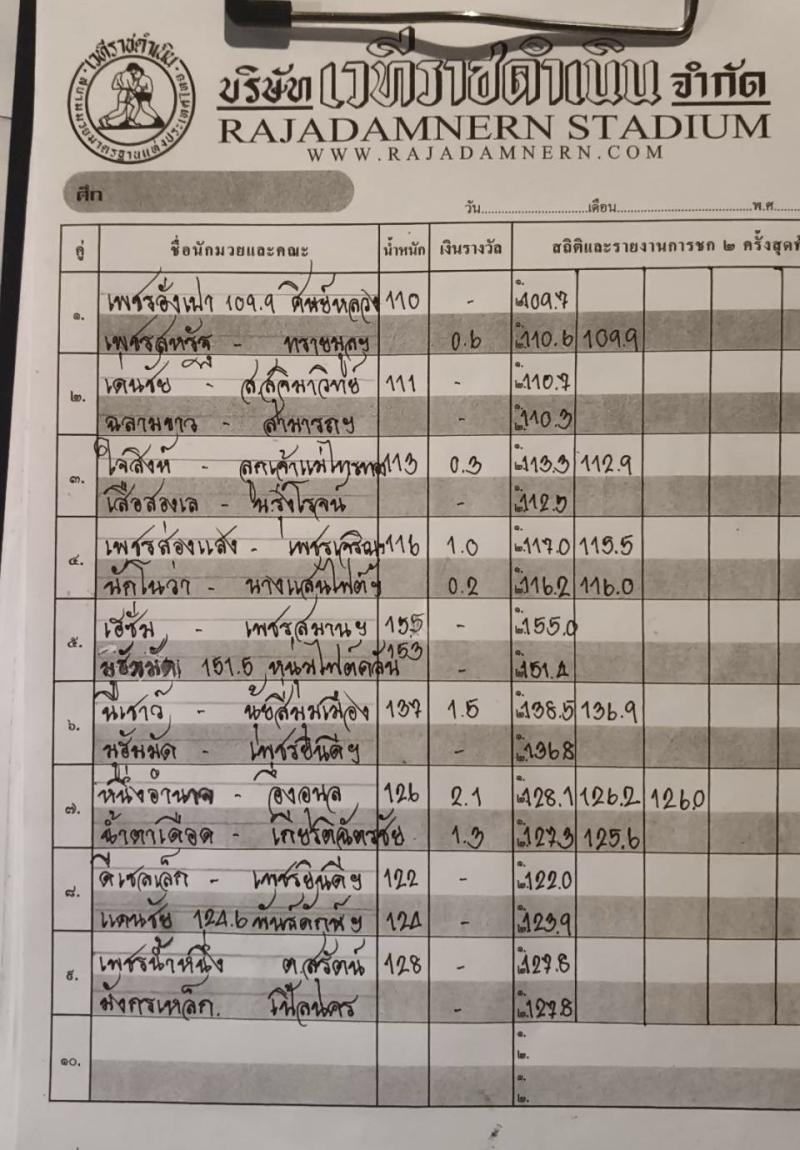 เวทีราชดำเนิน
บริษัท เวทีราชดำเนิน จำกัด
RAJADAMNERN STADIUM
WWW.RAJADAMNERN.COM
ศึก
วัน เดือน พ.ศ.
คู่ ชื่อนักมวยและคณะ น้ำหนัก เงินรางวัล สถิติและรายงานการชก ๒ ครั้งสุดท้
๑. เพชรอั่งเปา 109.9 ศิษย์หลวง 110 - ๑. 109.7
เพชรสหรัฐ - ทรายมูลฯ 0.6 ๒. 110.6 109.9
๒. เด่นชัย - ส.สุจิมาวิทย์ 111 - ๑. 110.7
ฉลามขาว - สามารถฯ - ๒. 110.3
๓. ใจสิงห์ - ลูกเจ้าแม่ไทรทอง 113 0.3 ๑. 113.3 112.9
เสือสองเล - - ๒. 112.5
๔. เพชรส่องแสง - เพชรเจริญ 116 1.0 ๑. 117.0 115.5
นักโนว่า - นางแลไฟต์ฯ 0.2 ๒. 116.2 116.0
๕. เฮซัม - เพชรสมานฯ 155 - ๑. 155.0
มูฮัมมัด 151.5 หนุ่มไฟต์คลับ 153 - ๒. 151.4
๖. - 137 1.5 ๑. 138.5 136.9
มูฮัมมัด - เพชรยินดีฯ - ๒. 136.8
๗. หนึ่งอำนาจ - อ๊องอนุล 126 2.1 ๑. 128.1 126.2 126.0
น้ำตาเดือด - เกียรติฉัตรชัย 1.3 ๒. 127.3 125.6
๘. ดีเซลเล็ก - เพชรยินดีฯ 122 - ๑. 122.0
แดนชัย 124.6 พันธ์ศักดิ์ฯ 124 - ๒. 123.9
๙. เพชรน้ำหนึ่ง ต.สุรัตน์ 128 - ๑. 127.8
มังกรเหล็ก. - ๒. 127.8
๑๐. ๑.
๒.
๑.
๒.